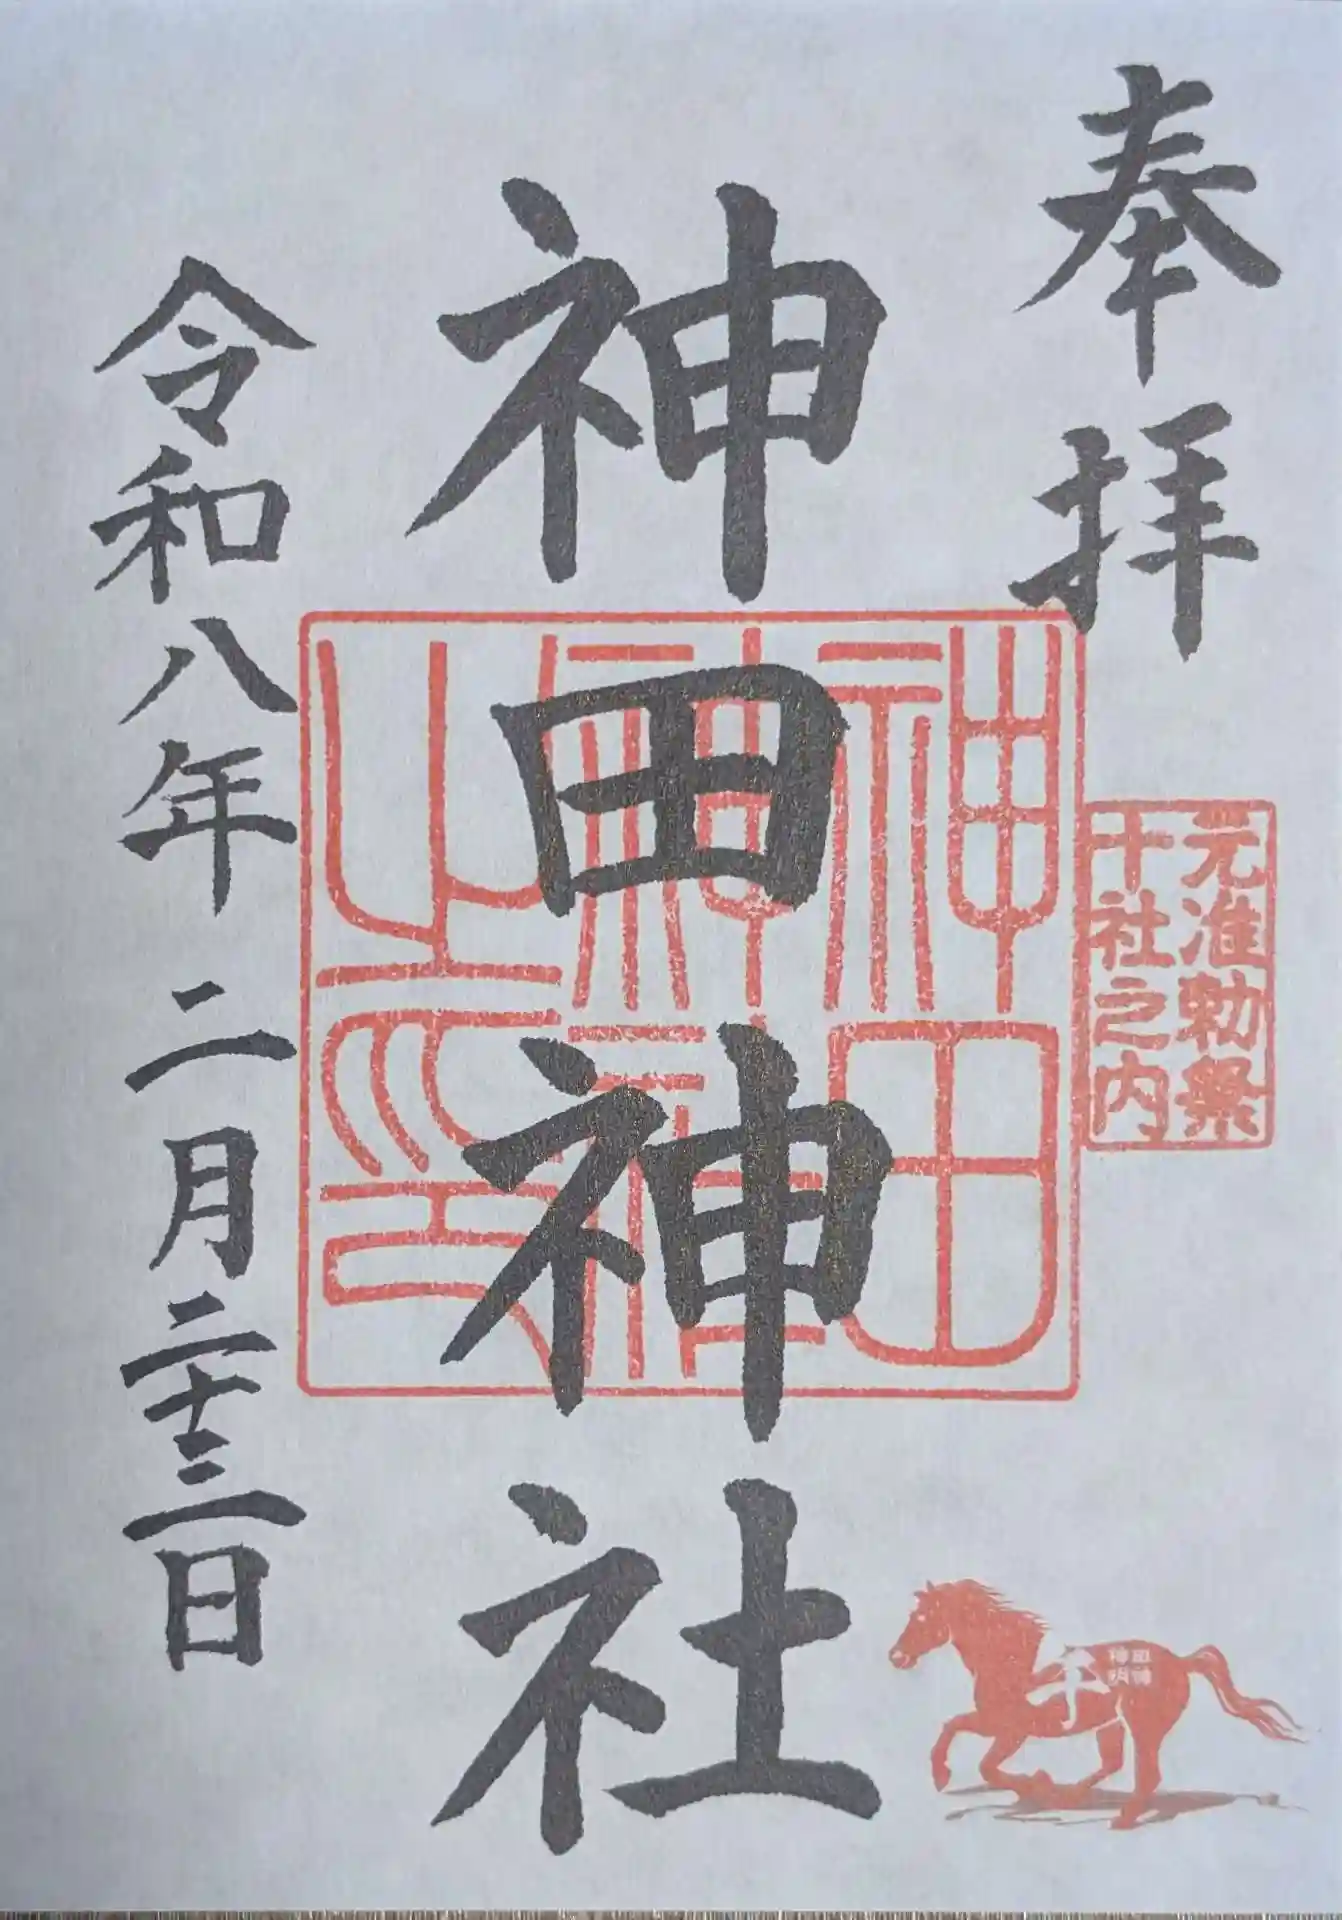 奉拝
元准勅祭
十社之内
神田神社
神田
神社
之印
令和八年二月二十三日
午